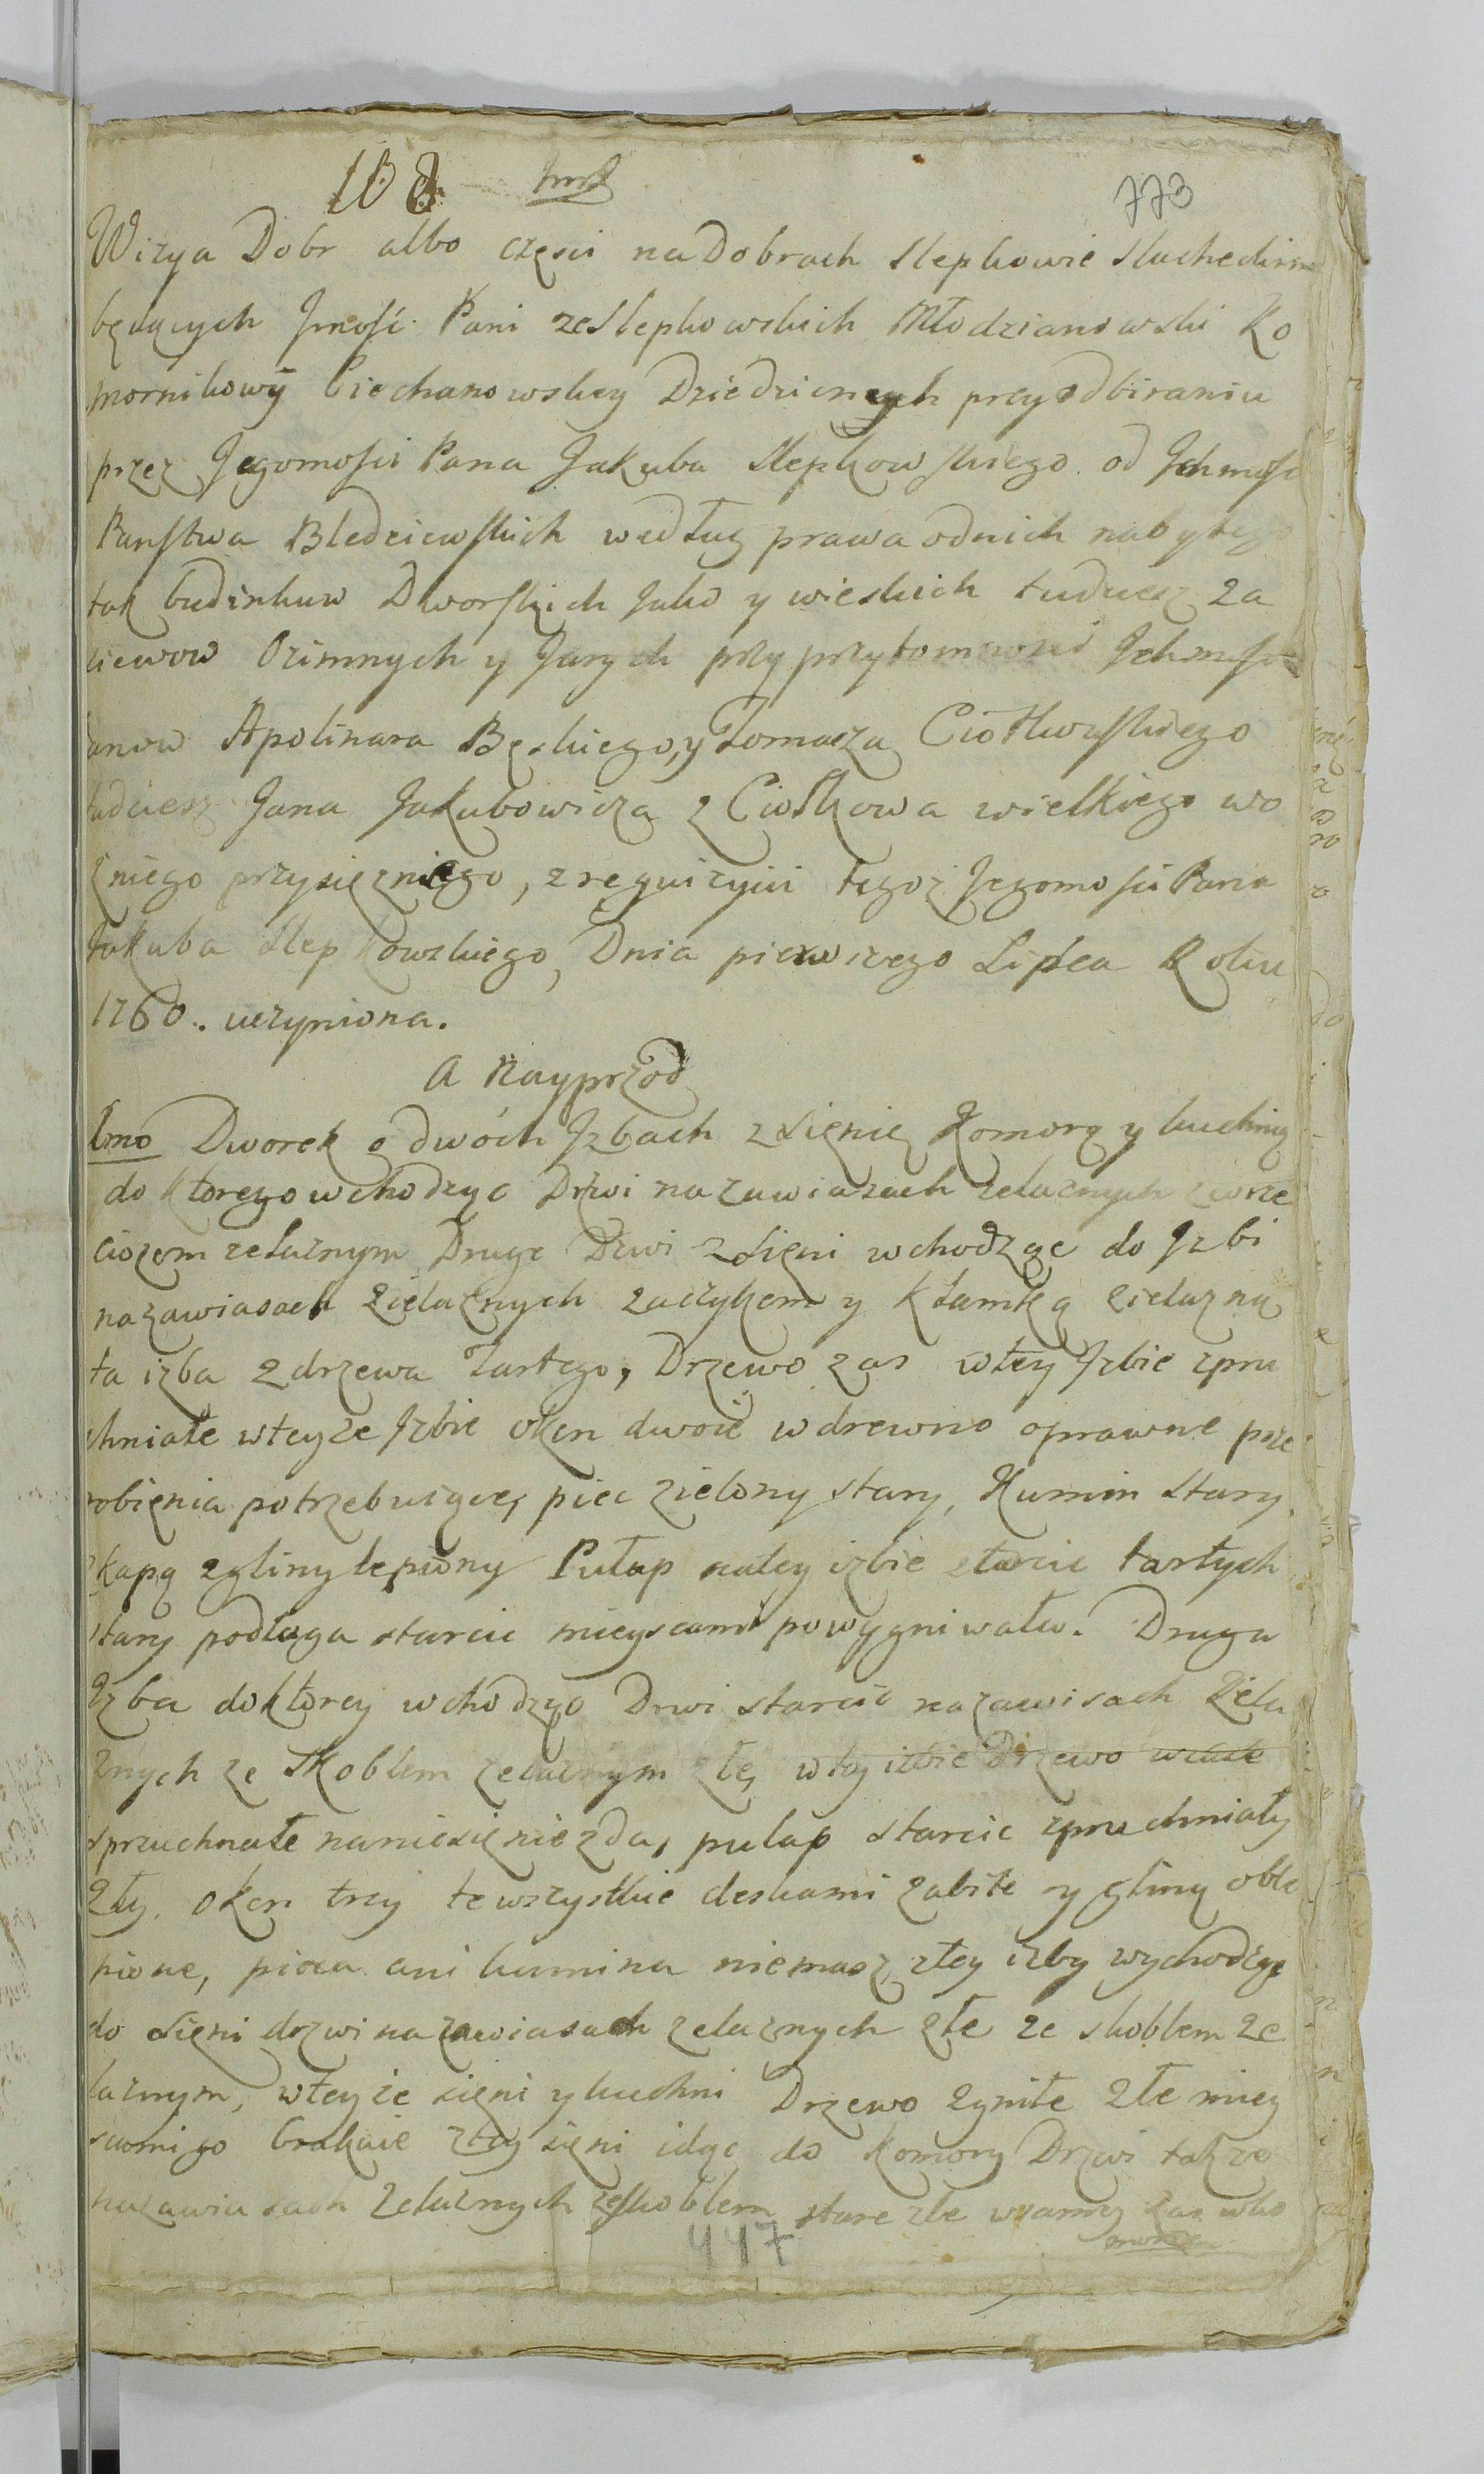 108
773
Wizya Dobr albo częsci na Dobrach Slepkowie Slacheckim
będących Jmość Pani ze Slepkowskich Młodzianowski Ko
mornikowÿ Ciechanowskey Dziedzicnych przy odbiraniu
przez Jegomości Pana Jakuba Slepkowskiego od Ichmość
Panstwa Bledziewskich według prawa od nich nabytego
tak budinkuw Dworskich Jako y wieskich tudziesz Za
siewow Ozimnych y Jarych przy przytomnosci Ichmość
anow Apolinara Bęskiego, y Tomasza Ciotkwskiego
tudziesz Jana Jakubowicza z Ciotkowa wielkiego wo
zniego przysięzniego, z reqvizycii tegoz Jegomości Pana
Jakuba Slepkowskiego, Dnia pierwszego Lipca Roku
1760. uczyniona.
A Nayprzod
1mo Dworek o dwóch Jzbach z Sięnią Komorą y kuchnią
do ktorego wchodząc Drzwi na zawiasach zelaznych z wrze
ciozem zelaznym Druge Drzwi z Sięni wchodzące do Jzbi
na zawiasach zielaznych zaczykem y Klamką zielazną
ta izba z drzewa tartego, Drzewo zas w tey Jzbie spru
chniałe w teyze Jzbie oken dwoie w drewno oprawne prze
robięnia potrzebuiące, piec zielony stary, Kumin stary
z kapą z gliny lepiony Pułap na tey izbie z tarcic tartych
stary podłoga z tarcic mieyscami powygniwała. Druga
Jzba do ktorey wchodząc Drzwi z tarcic na zawisach Zela
znych ze skoblem zelaznym złe, w tey izbie Drzewo wcale
sprzuchnałe na nic się nie zda, pulap z tarcic spruchniały
zły. oken trzy te wszystkie deskami zabite y gliną oble
pione, pieca ani kumina niemasz, z tey izby wychodząc
do Sięni drzwi na zawiasach zelaznych złe ze skoblem ze
laznym, w teyze sięni y kuchni Drzewo zgniłe złe miey
scami go brakuie z tey sięni idąc do Komory Drzwi takze
na zawiasach Zelaznych ze skoblem stare złe w samey zas ko
morze
447